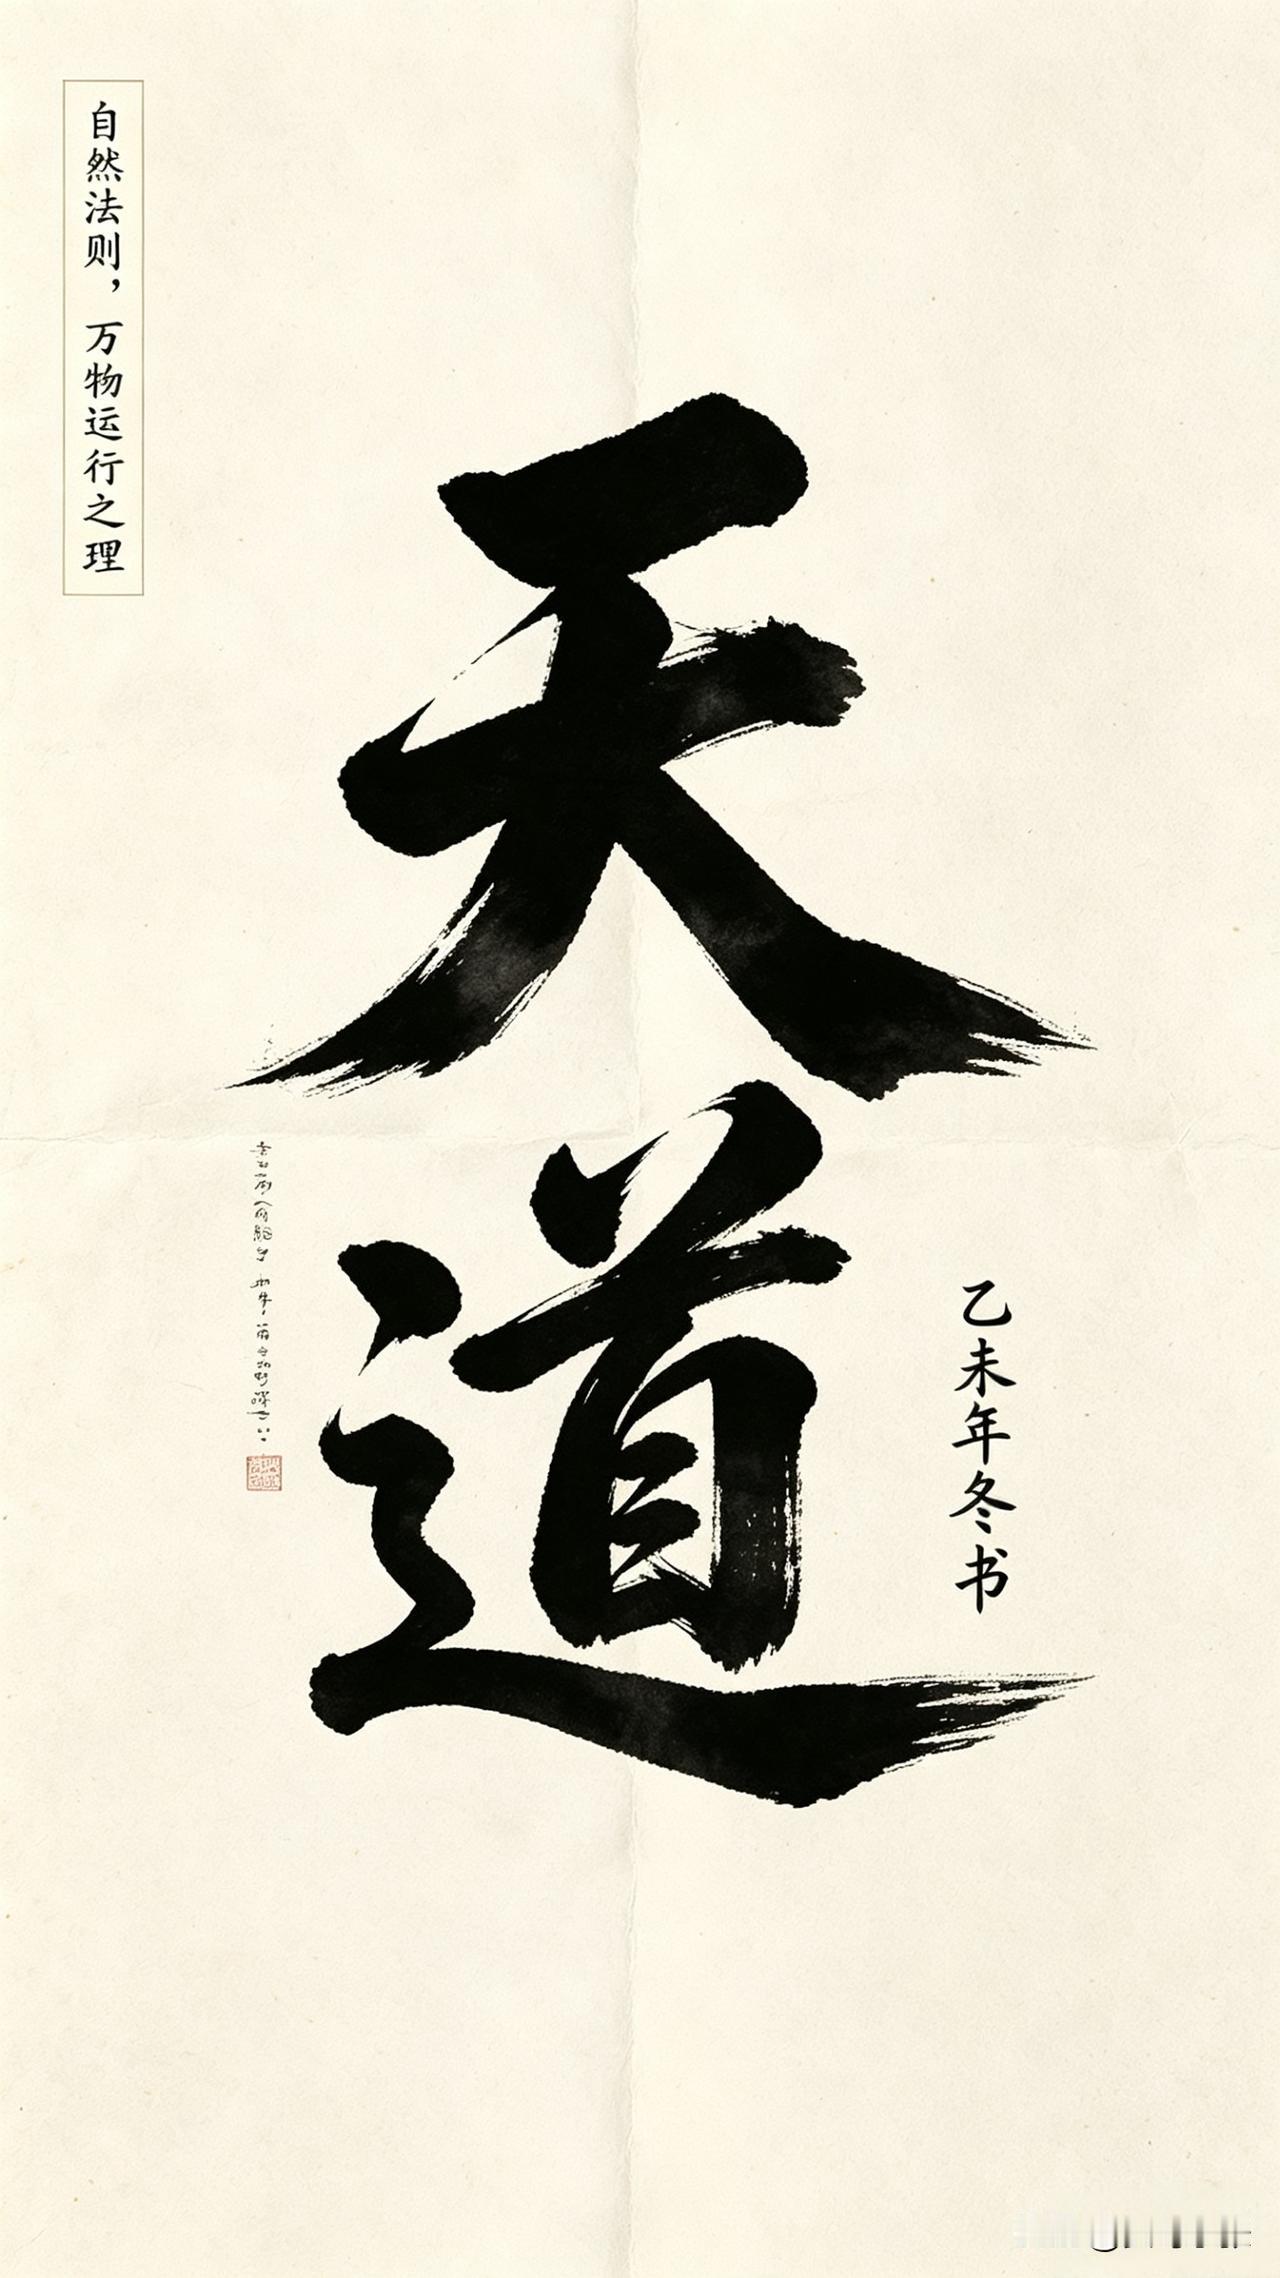 自然法则，万物运行之理
天道
乙未年冬书